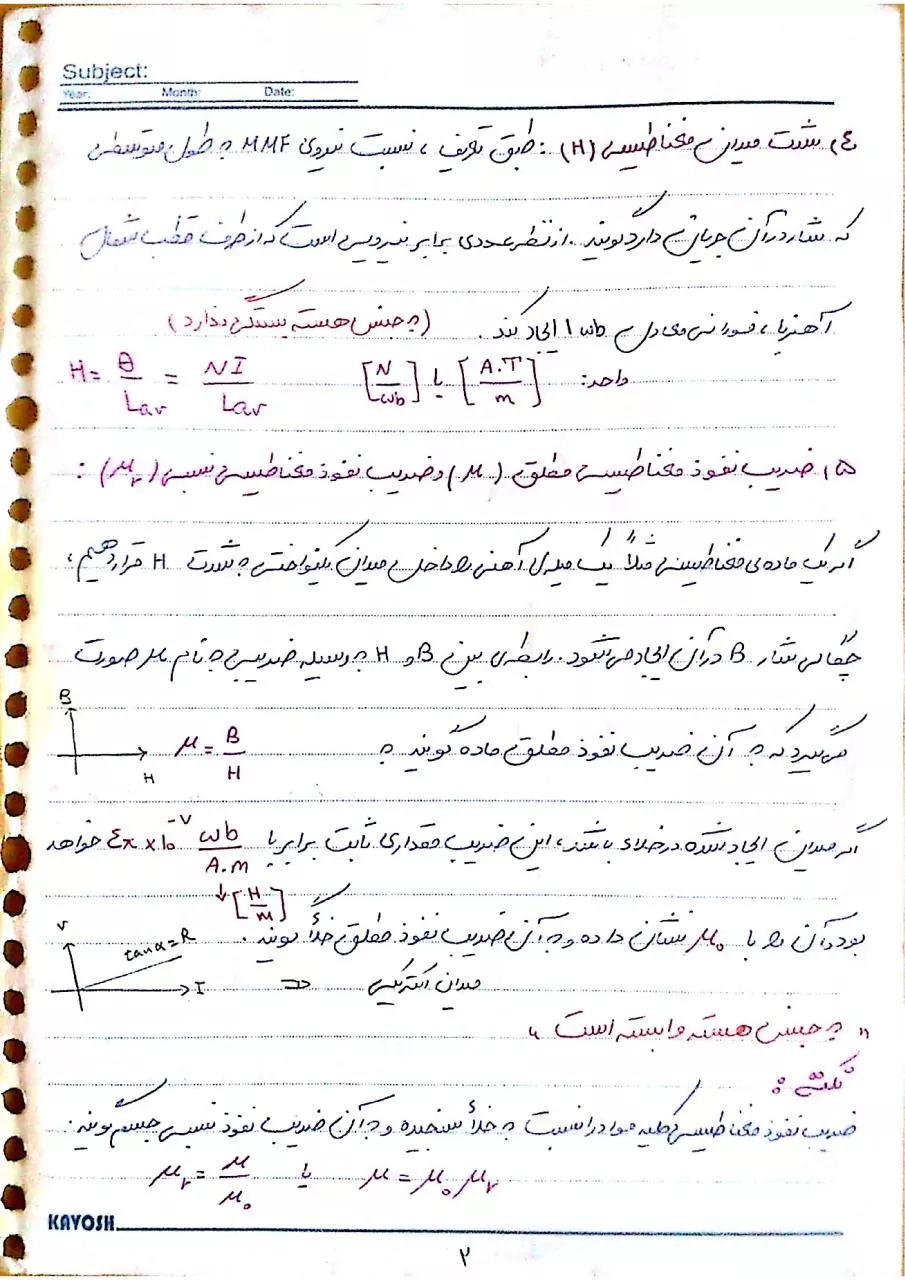 Subject:
Year: Month: Date:
۴) شدت میدان مغناطیسی (H): طبق تعریف، نسبت نیروی MMF به طول متوسطی
که شار در آن جریان دارد گویند. از نظر عددی برابر نیرویی است که از طرف قطب شمال
آهنربا، فورانی معادل 1 wb ایجاد کند. (به جنس هسته بستگی ندارد)
واحد: [A.T/m] یا [N/wb] H = θ/Lav = NI/Lav
۵) ضریب نفوذ مغناطیسی مطلق (μ) و ضریب نفوذ مغناطیسی نسبی (μr):
اگر یک ماده‌ی مغناطیسی مثلاً یک میله‌ی آهنی را داخل میدان یکنواختی به شدت H قرار دهیم،
چگالی شار B در آن ایجاد می‌شود. رابطه‌ی بین B و H به وسیله ضریبی به نام μ صورت
می‌گیرد که به آن ضریب نفوذ مطلق ماده گویند به μ = B/H
B
H
اگر میدان ایجاد شده در خلاء باشد، این ضریب مقداری ثابت برابر با ۴π × ۱۰^-۷ wb/A.m خواهد
[H/m]
بود و آن را با μ₀ نشان داده و به آن ضریب نفوذ مطلق خلأ گویند.
V
tan α = R
I
میدان الکتریکی
"به جنس هسته وابسته است"
نکته:
ضریب نفوذ مغناطیسی کلیه مواد را نسبت به خلأ سنجیده و به آن ضریب نفوذ نسبی جسم گویند:
μr = μ/μ₀ یا μ = μ₀ μr
KAVOSH
۲